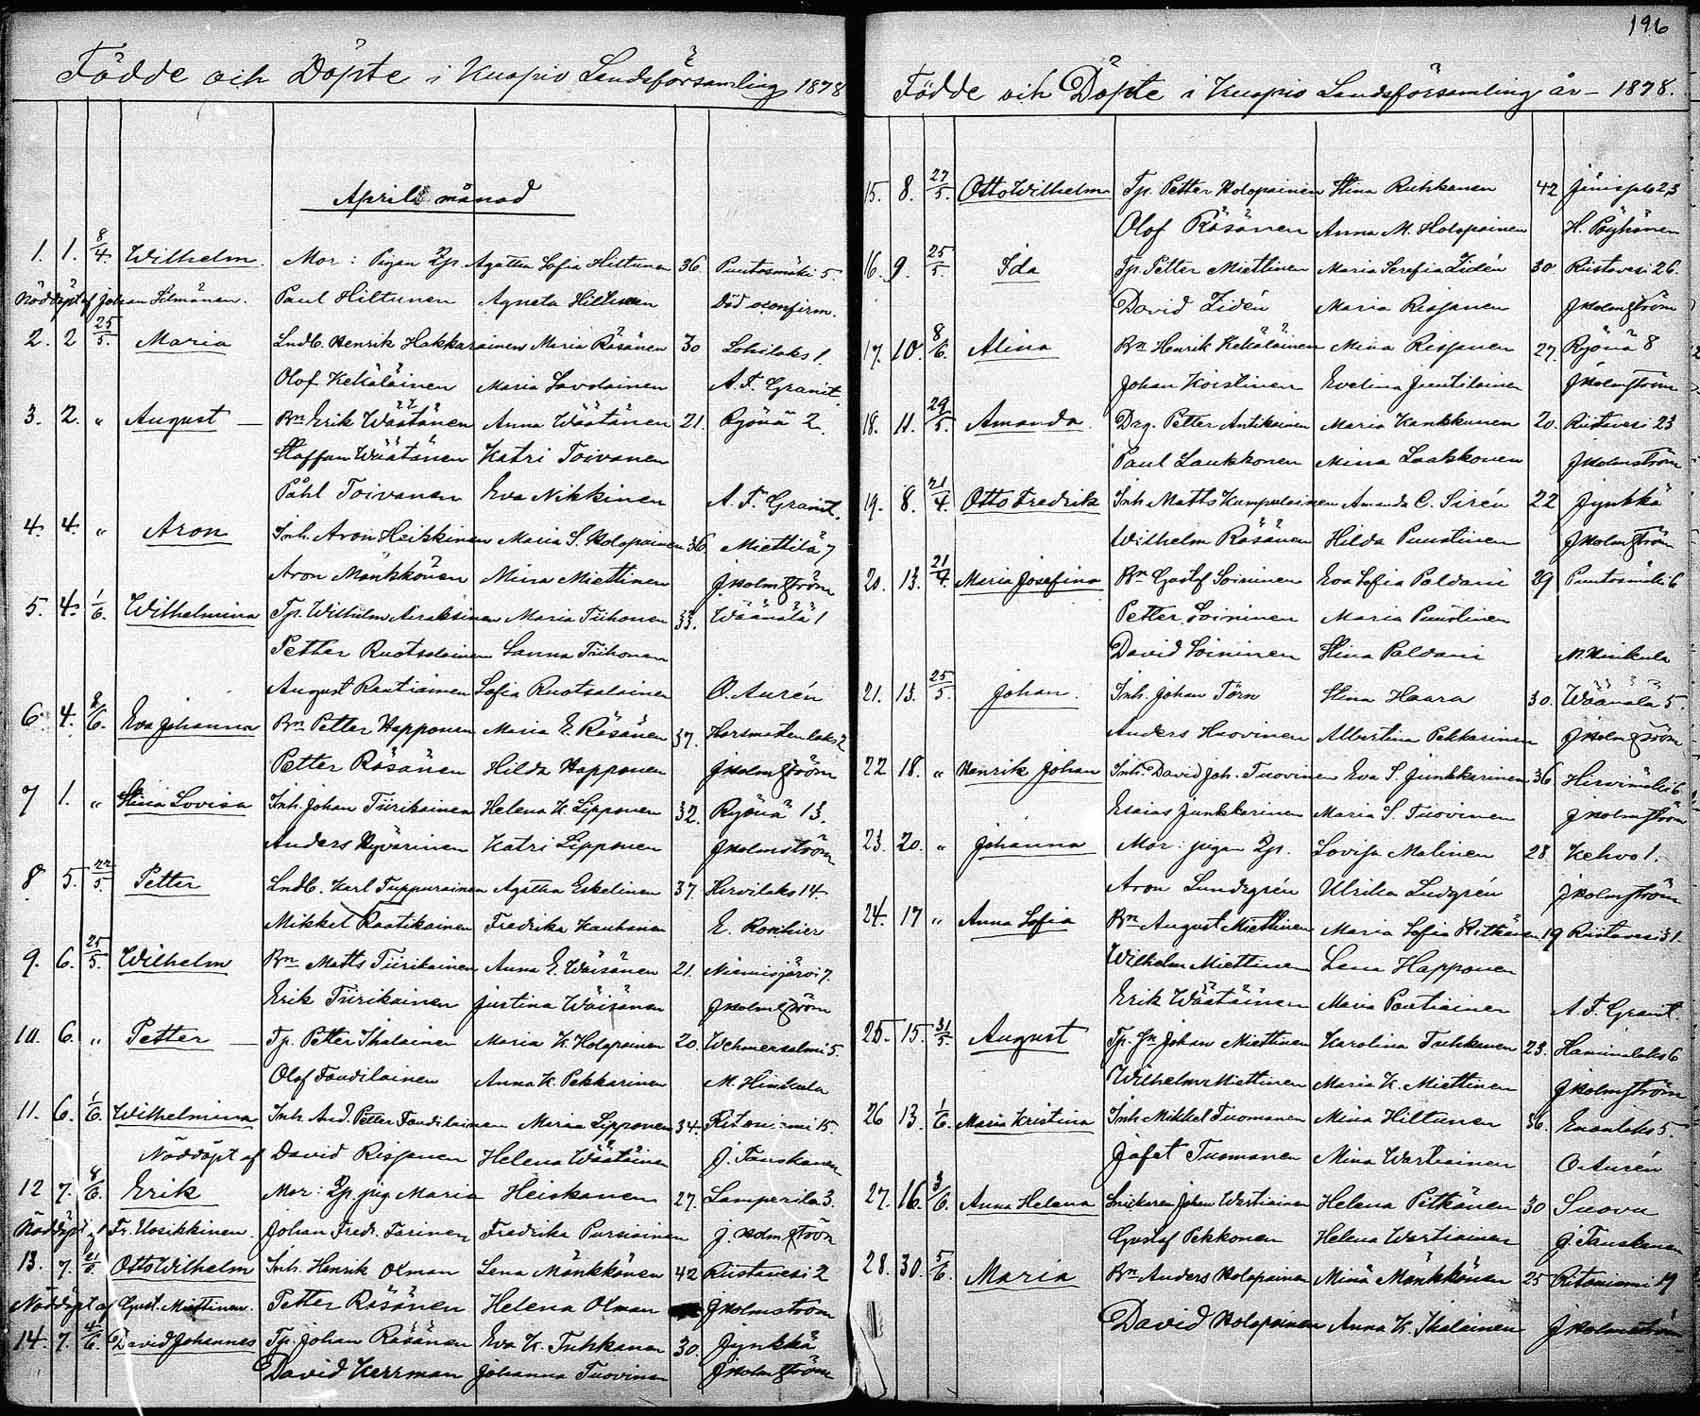 Födde och Döpte i Kuopio Landsförsamling 1878
April månad
1. 1. 8/4. Wilhelm. Mor: Pigan Agatha Sofia Hiltunen 36. Puutosmäki 5.
Nöddöpt af Johan Silmänen. Paul Hiltunen Agneta Hiltunen Död oconfirm.
2. 2 25/5. Maria Lndb. Henrik Hakkarainen Maria Räsänen 30 Lohilaks 1.
Olof Kekäläinen Maria Savolainen A. F. Granit.
3. 2. " August Bn Erik Wäätänen Anna Wäätänen 21. Ryönä 2.
Staffan Wäätänen Katri Toivanen
Påhl Toivanen Eva Nikkinen A. F. Granit.
4. 4. " Aron Inh. Aron Heikkinen Maria S. Holopainen 36 Miettilä 7
Aron Mönkkönen Mina Miettinen J Holmström
5. 4. 1/6. Wilhelmina Tp. Wilhelm Airaksinen Maria Tiihonen 33. Wäänälä 1
Petter Ruotsalainen Sanna Tiihonen
August Rautiainen Sofia Ruotsalainen O. Aurén
6. 4. 8/6. Eva Johanna Bn Petter Happonen Maria E. Räsänen 37. Horsmanlaks 2
Petter Räsänen Hilda Happonen J Holmström
7 1. " Stina Lovisa Inh. Johan Tiirikainen Helena K. Lipponen 32. Ryönä 13.
Anders Hyvärinen Katri Lipponen J Holmström
8 5. 22/5. Petter Lndb. Karl Tuppurainen Agatha Eskelinen 37. Hirvilaks 14.
Mikkel Raatikainen Fredrika Kauhanen E. Roschier
9. 6. 25/5. Wilhelm Bn Matts Tiirikainen Anna E. Wäisänen 21. Niemisjärvi 7.
Erik Tiirikainen Justina Wäisänen J Holmström
10. 6. " Petter Tp. Petter Ihalainen Maria K. Holopainen 20. Wehmersalmi 5.
Olof Taudilainen Anna K. Pekkarinen M. Hinkula
11. 6. 1/6. Wilhelmina Inh. And. Petter Taudilainen Maria Lipponen 34. Ritoniemi 15.
Nöddöpt af David Rissanen Helena Wäätäinen J. Tanskanen
12 7. 8/6. Erik Mor: pig Maria Heiskanen 27. Lamperila 3.
Nöddöpt af Fr. Uosikkinen. Johan Fredr. Tarinen Fredrika Pursiainen J. Holmström
13. 7. Otto Wilhelm Inh. Henrik Olman Lena Mönkkönen 42 Riistavesi 2
Nöddöpt af Gust. Miettinen. Petter Räsänen Helena Olman J Holmström
14. 7. 4/6. David Johannes Tp. Johan Räsänen Eva K. Tuhkanen 30. Jynkkä
David Herrman Johanna Tuovinen J Holmström
196
Födde och Döpte i Kuopio Landsförsamling år – 1878.
15. 8. 27/5. Otto Wilhelm Tp. Petter Holopainen Stina Ruhkanen 42 Jänispelto 23
Olof Räsänen Anna M. Holopainen H. Pöyhönen
16. 9. 25/5. Ida Tp. Petter Miettinen Maria Serafia Lidén 30 Riistavesi 26.
David Lidén Maria Rissanen J Holmström
17. 10. 8/6. Alina Bn Henrik Kekäläinen Mina Rissanen 27. Ryönä 8
Johan Koistinen Evelina Juutilainen J Holmström
18. 11. 29/5. Amanda Drg. Petter Antikainen Maria Kankkunen 20. Riistavesi 23
Paul Laukkonen Mina Laakkonen J Holmström
19. 8. 21/4. Otto Fredrik Inh. Matts Kumpulainen Amanda C. Sirén 22 Jynkkä
Wilhelm Räsänen Hilda Puustinen J Holmström
20. 13. 21/4. Maria Josefina Bn Gustaf Soininen Eva Sofia Paldani 39 Puutosmäki 6
Petter Soininen Maria Puustinen
David Soininen Stina Paldani M. Hinkula
21. 13. 25/5. Johan. Inh. Johan Törn Stina Haara 30. Wäänälä 5.
Anders Huovinen Albertina Pekkarinen J Holmström
22 18. " Henrik Johan Inh. David Joh. Tuovinen Eva S. Junkkarinen 36 Hirvimäki 6
Esaias Junkkarinen Maria S. Tuovinen J Holmström
23. 20. " Johanna Mor: pigan Lovisa Malinen 28 Kehvo 1.
Aron Lundegrén Ulrika Ludgrén J Holmström
24. 17 " Anna Sofia Bn August Miettinen Maria Sofia Pitkänen 19 Riistavesi 31.
Wilhelm Miettinen Lena Happonen
Erik Wäätäinen Maria Pantiainen A. F. Granit.
25. 15. 31/5. August Tp. Johan Miettinen Karolina Tuhkanen 23. Haminalaks 6
Wilhelm Miettinen Maria K. Miettinen J Holmström
26 13. 1/6. Maria Kristina Inh Mikkel Tuomanen Mina Hiltunen 36. Enonlaks 5.
Jafet Tuomanen Mina Wartiainen O Aurén
27. 16. 3/6. Anna Helena Snickaren Johan Wartiainen Helena Pitkänen 30 Suovu
Gustaf Pekkonen Helena Wartiainen J. Tanskanen
28. 30. 5/6. Maria Bn Anders Holopainen Mina Mönkkönen 25 Ritoniemi 19
David Holopainen Anna K. Ihalainen J Holmström